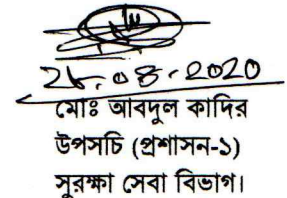 25.08.2020
মোঃ আবদুল কাদির
উপসচি (প্রশাসন-১)
সুরক্ষা সেবা বিভাগ।